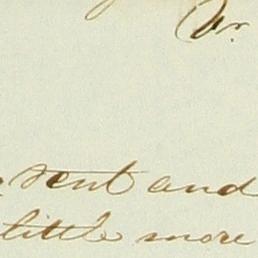 sent and
little more